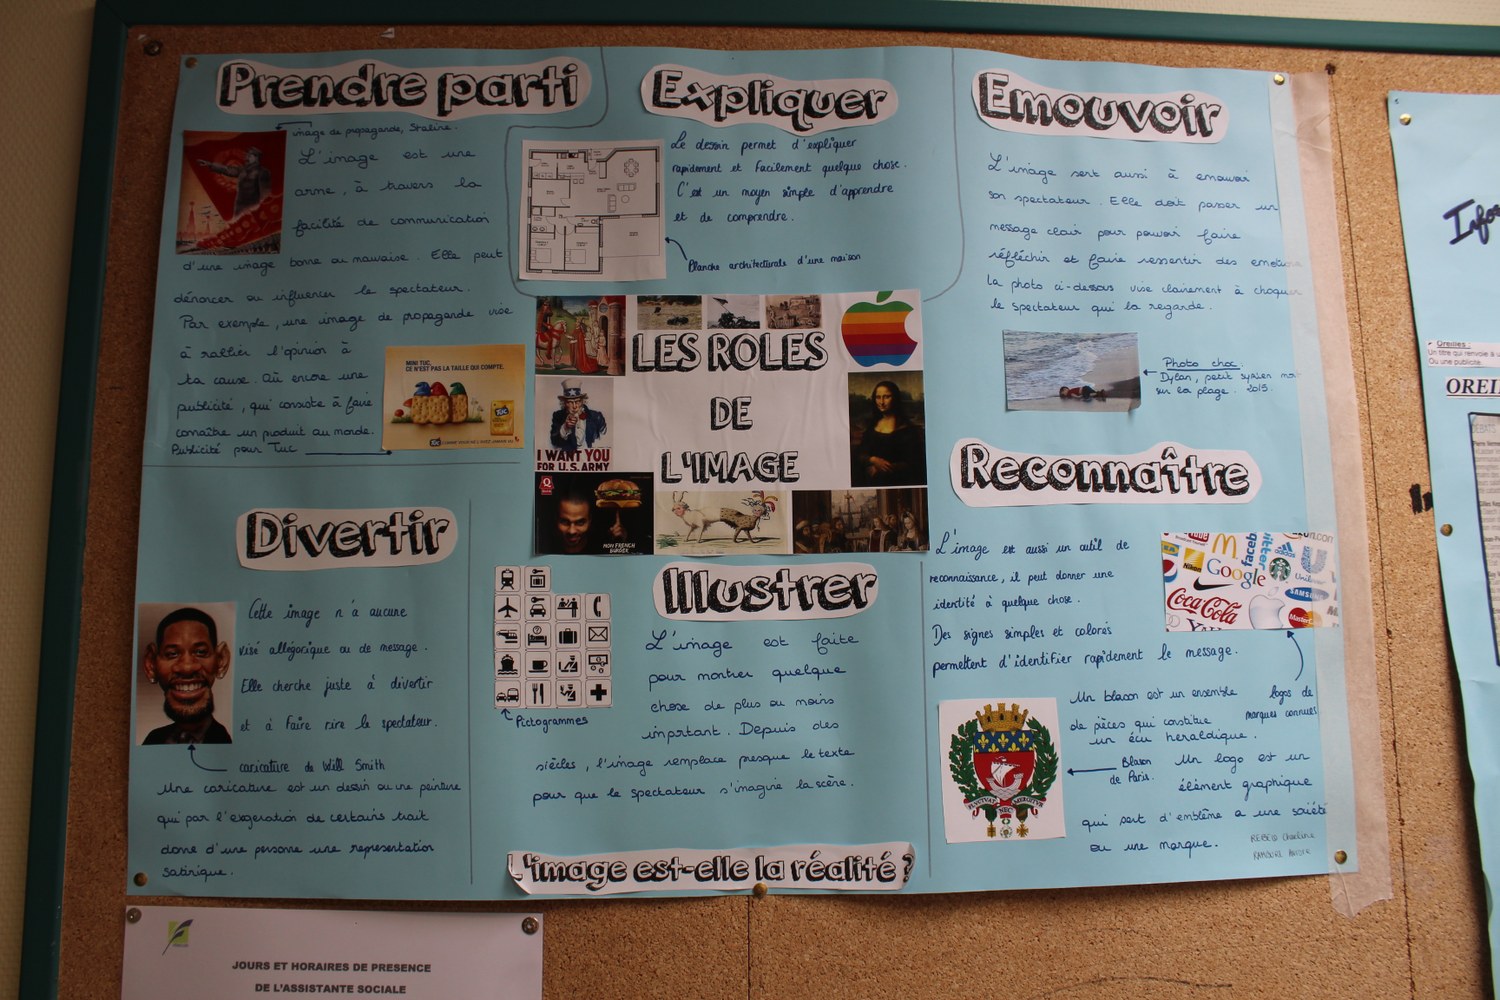 Prendre parti
image de propagande, Staline.
L'image est une
arme, à travers la
facilité de communication
d'une image bonne ou mauvaise. Elle peut
dénoncer ou influencer le spectateur.
Par exemple, une image de propagande vise
à rallier l'opinion à
ta cause. Où encore une
publicité, qui consiste à faire
connaître un produit au monde.
Publicité pour Tuc
MINI TUC.
CE N'EST PAS LA TAILLE QUI COMPTE.
Expliquer
Le dessin permet d'expliquer
rapidement et facilement quelque chose.
C'est un moyen simple d'apprendre
et de comprendre.
Planche architecturale d'une maison
Emouvoir
L'image sert aussi à emouvoir
son spectateur. Elle doit passer un
message clair pour pouvoir faire
réfléchir et faire ressentir des emotions
la photo ci-dessous vise clairement à choquer
le spectateur qui la regarde.
Photo choc:
Dylan, petit syrien mort
sur la plage. 2015.
LES ROLES
DE
L'IMAGE
I WANT YOU
FOR U.S. ARMY
Q
MON FRENCH
BURGER
Divertir
Cette image n'a aucune
visé allégorique ou de message.
Elle cherche juste à divertir
et à faire rire le spectateur.
caricature de Will Smith
Une caricature est un dessin ou une peinture
qui par l'exgeration de certains trait
donne d'une personne une representation
satirique.
Illustrer
Pictogrammes
L'image est faite
pour montrer quelque
chose de plus ou moins
important. Depuis des
siècles, l'image remplace presque le texte
pour que le spectateur s'imagine la scène.
Reconnaître
L'image est aussi un outil de
reconnaissance, il peut donner une
identité à quelque chose.
Des signes simples et colorés
permettent d'identifier rapidement le message.
M
Nikon
Google
adidas
Coca-Cola
SAMSUNG
MasterCard
logos de
marques connues
Un blason est un ensemble
de pièces qui constitue
un écu heraldique.
Blason
de Paris.
Un logo est un
élément graphique
qui sert d'emblème a une société
ou une marque.
FLUCTUAT NEC MERGITUR
L'image est-elle la réalité ?
JOURS ET HORAIRES DE PRESENCE
DE L'ASSISTANTE SOCIALE
Oreilles :
Un titre qui renvoie à
Ou une publicité.